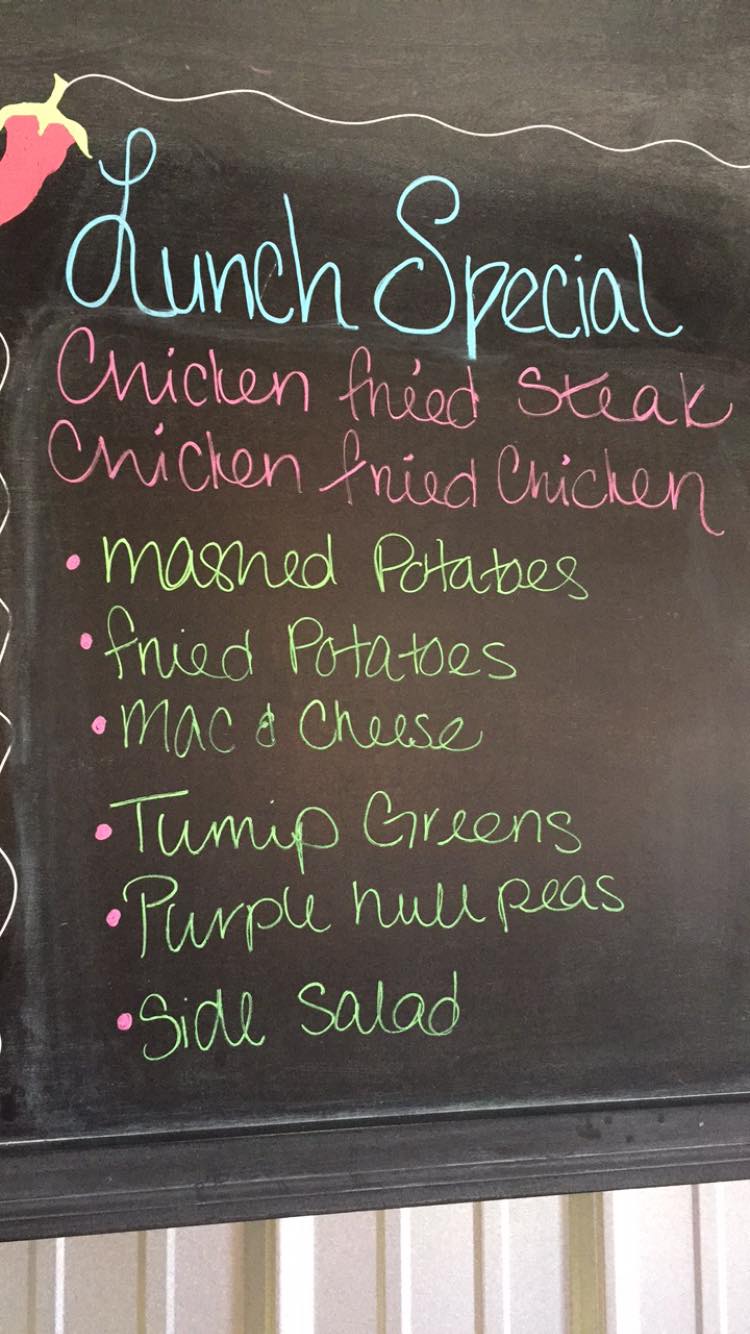 Lunch Special
Chicken fried Steak
Chicken fried Chicken
• mashed Potatoes
• fried Potatoes
• Mac & Cheese
• Turnip Greens
• Purple hull peas
• Side Salad